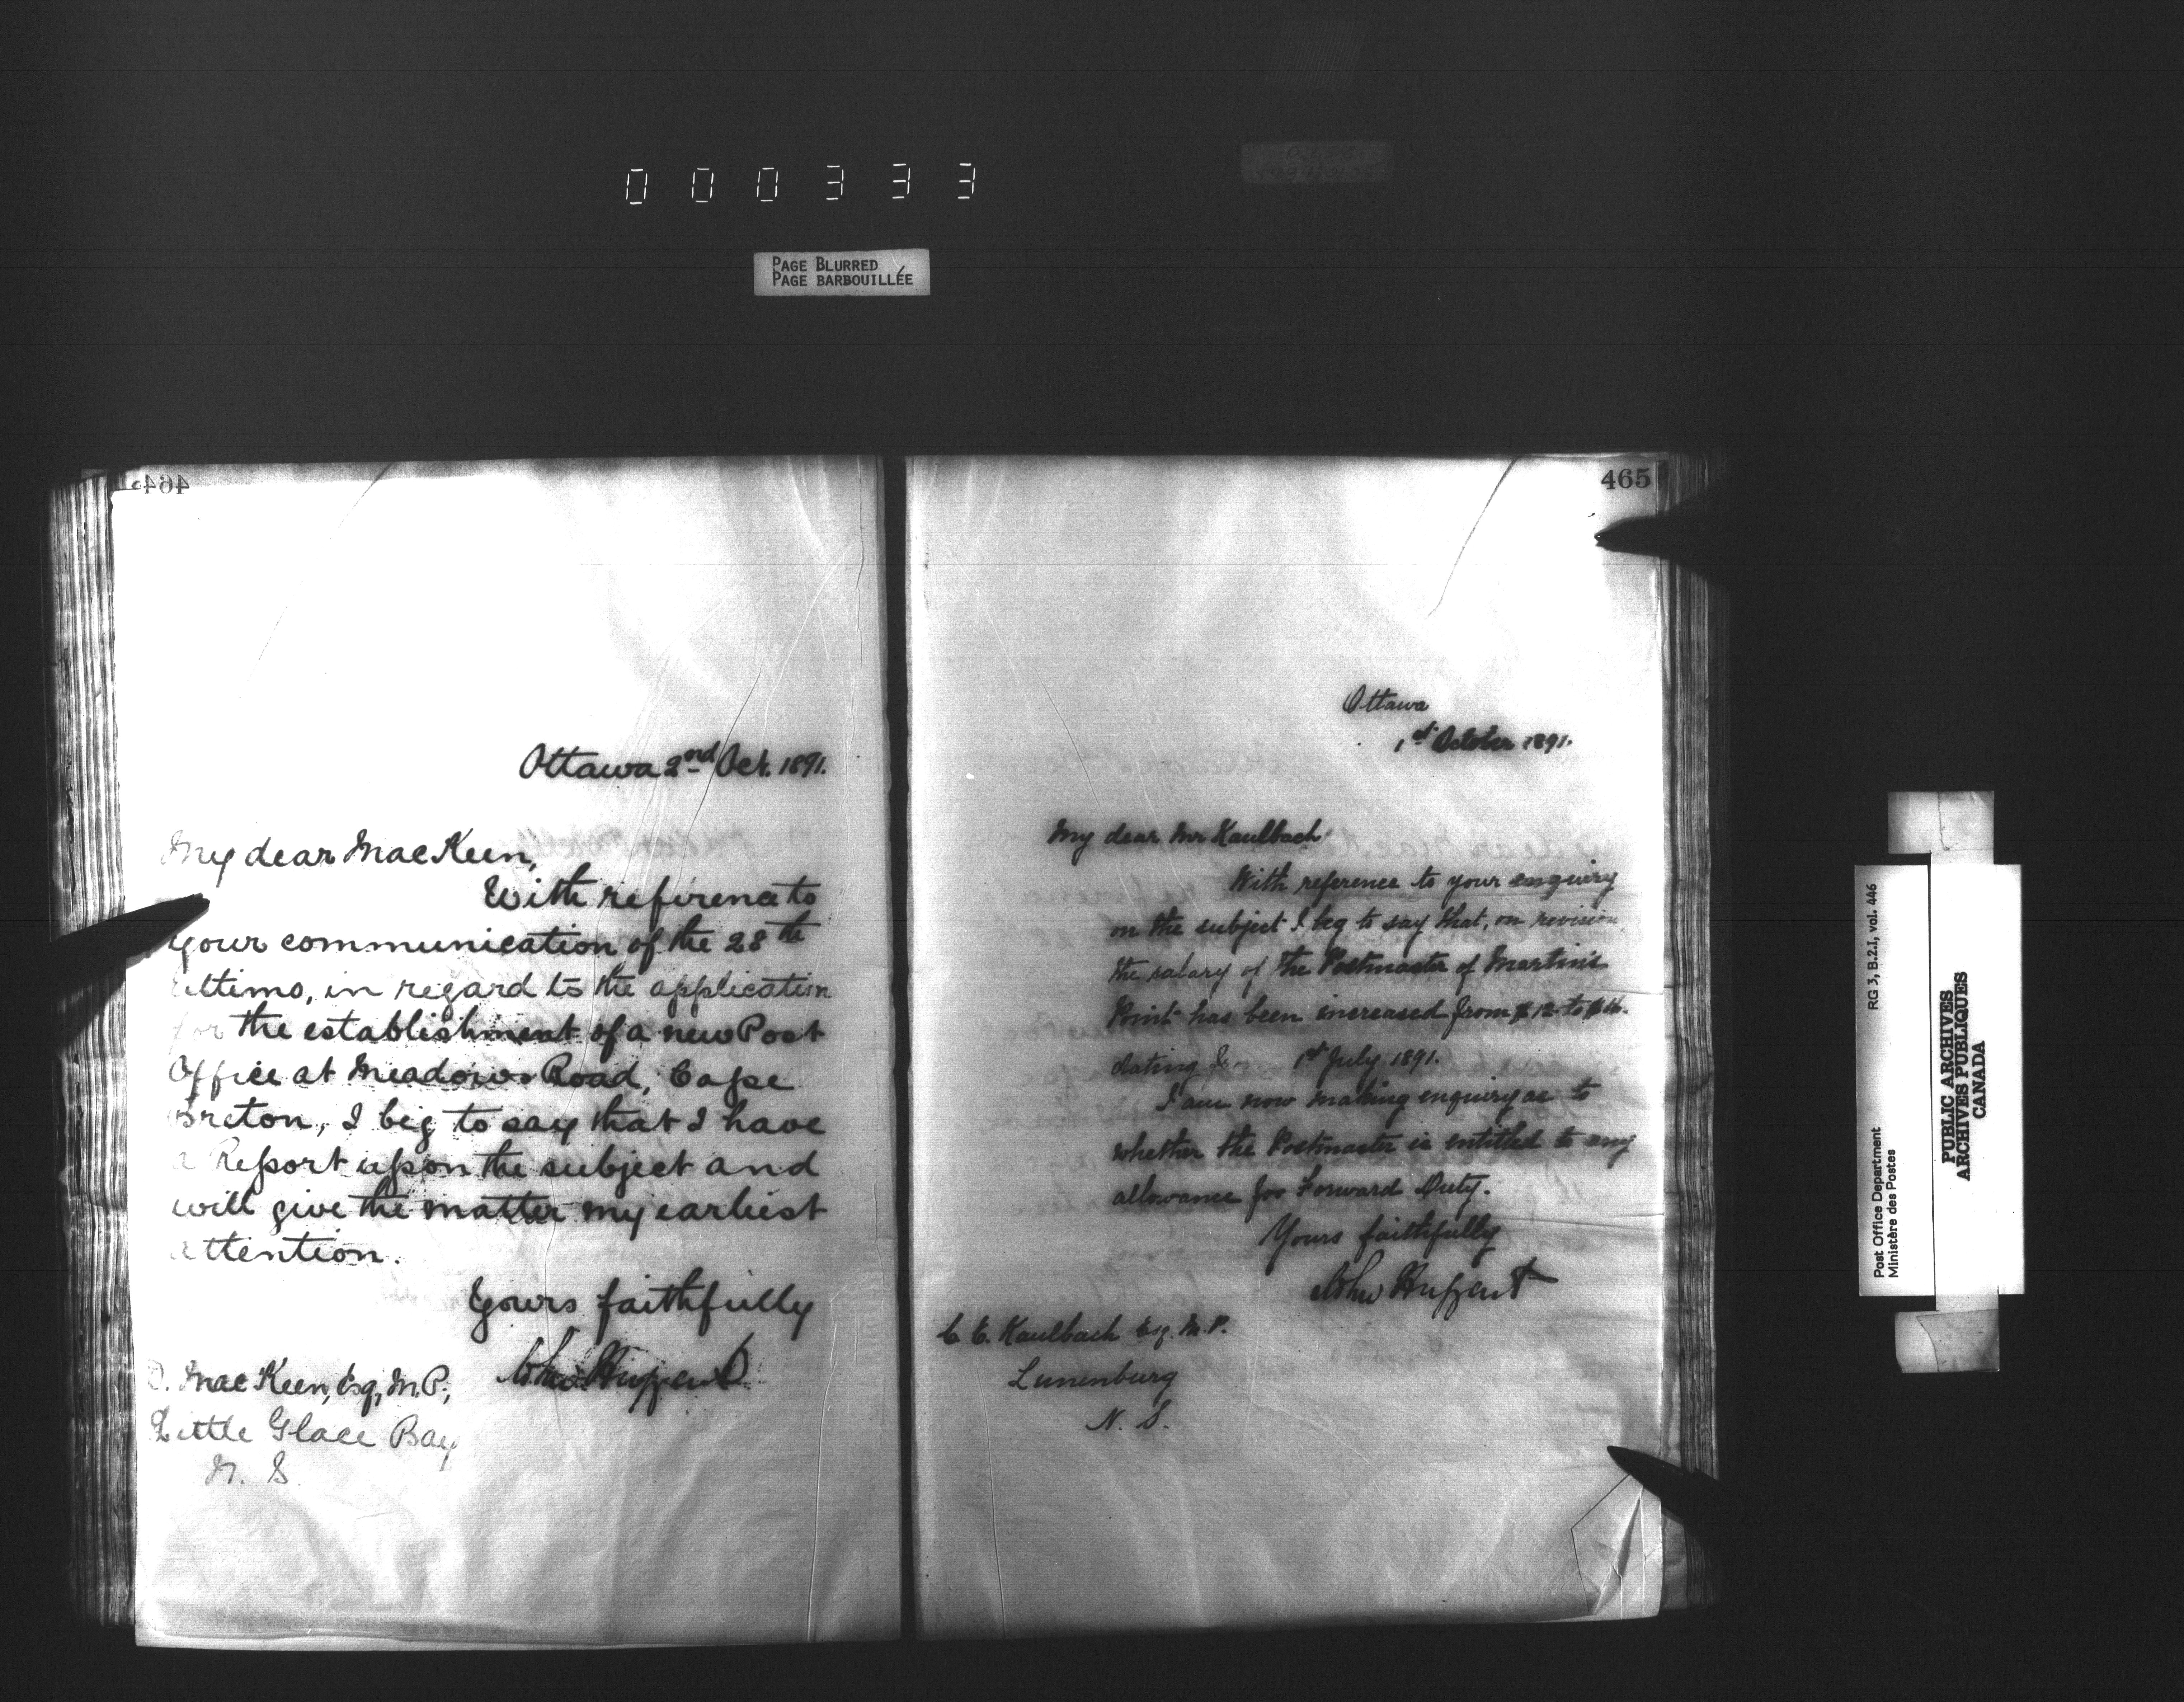 000333
PAGE BLURRED
PAGE BARBOUILLÉE
464
Ottawa 2nd Oct. 1891.
My dear MacKeen,
With reference to
your communication of the 28th
ultimo, in regard to the application
for the establishment of a new Post
Office at Meadows Road, Cape
Breton, I beg to say that I have
a Report upon the subject and
will give the matter my earliest
attention.
Yours faithfully
D. MacKeen, Esq, M.P.,
Little Glace Bay
N. S.
465
Ottawa
1st October 1891.
My dear Mr Kaulbach
With reference to your enquiry
on the subject I beg to say that, on revision
the salary of the Postmaster of Martin's
Point has been increased from $12 to
dating 1st July 1891.
I am now making enquiry as to
whether the Postmaster is entitled to any
allowance for Forward Duty.
Yours faithfully
John Haggart
C. E. Kaulbach Esq. M.P.
Lunenburg
N. S.
RG 3, B.2.1, vol. 446
Post Office Department
Ministère des Postes
PUBLIC ARCHIVES
ARCHIVES PUBLIQUES
CANADA